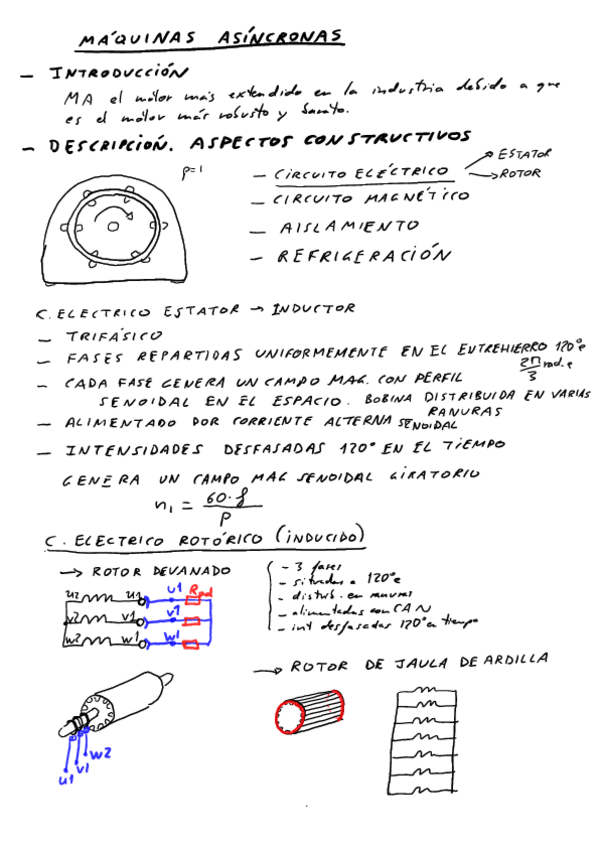 MÁQUINAS ASÍNCRONAS
- INTRODUCCIÓN
MA el motor más extendido en la industria debido a que
es el motor más robusto y barato.
- DESCRIPCIÓN. ASPECTOS CONSTRUCTIVOS
p=1
- CIRCUITO ELÉCTRICO
→ ESTATOR
→ ROTOR
- CIRCUITO MAGNÉTICO
- AISLAMIENTO
- REFRIGERACIÓN
C. ELECTRICO ESTATOR → INDUCTOR
- TRIFÁSICO
- FASES REPARTIDAS UNIFORMEMENTE EN EL ENTREHIERRO 120°e
2π/3 rad.e
- CADA FASE GENERA UN CAMPO MAG. CON PERFIL
SENOIDAL EN EL ESPACIO. BOBINA DISTRIBUIDA EN VARIAS
RANURAS
- ALIMENTADO POR CORRIENTE ALTERNA SENOIDAL
- INTENSIDADES DESFASADAS 120° EN EL TIEMPO
GENERA UN CAMPO MAG SENOIDAL GIRATORIO
n₁ = 60·f / P
C. ELECTRICO ROTÓRICO (INDUCIDO)
→ ROTOR DEVANADO
- 3 fases
- situadas a 120°e
- distrib. en ranuras
- alimentadas con CAN
- int desfasadas 120° en tiempo
u2 u1 u1 Rad
v2 v1 v1
w2 w1 w1
→ ROTOR DE JAULA DE ARDILLA
w2
v1
u1